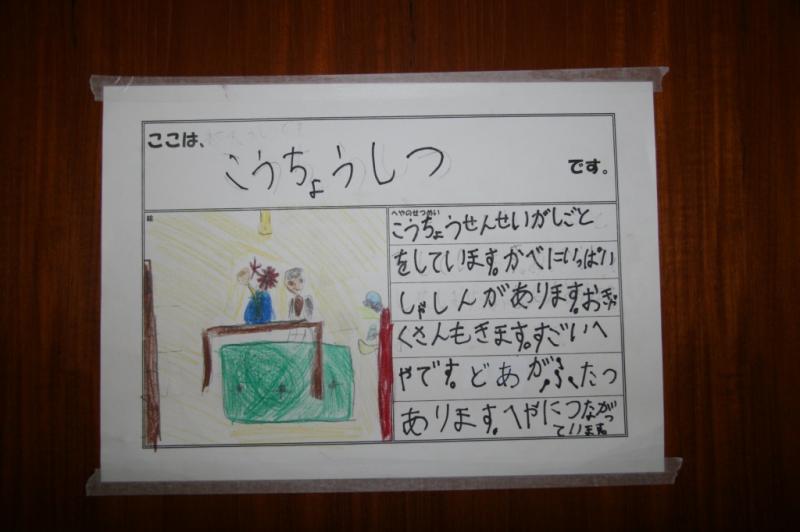 ここは、
こうちょうしつ
です。
絵
へやのせつめい
こうちょうせんせいがしごと
をしています。かべにいっぱい
しゃしんがあります。おきゃ
くさんもきます。すごいへ
やです。どあがふたつ
あります。へやにつながっ
ています。